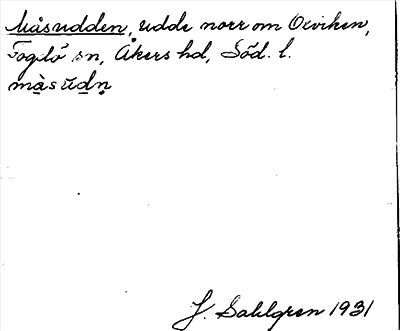 Måsudden, udde norr om Oxviken,
Fogdö sn, Åkers hd, Söd. l.
mà̱sŭḏṇ
J. Sahlgren 1931